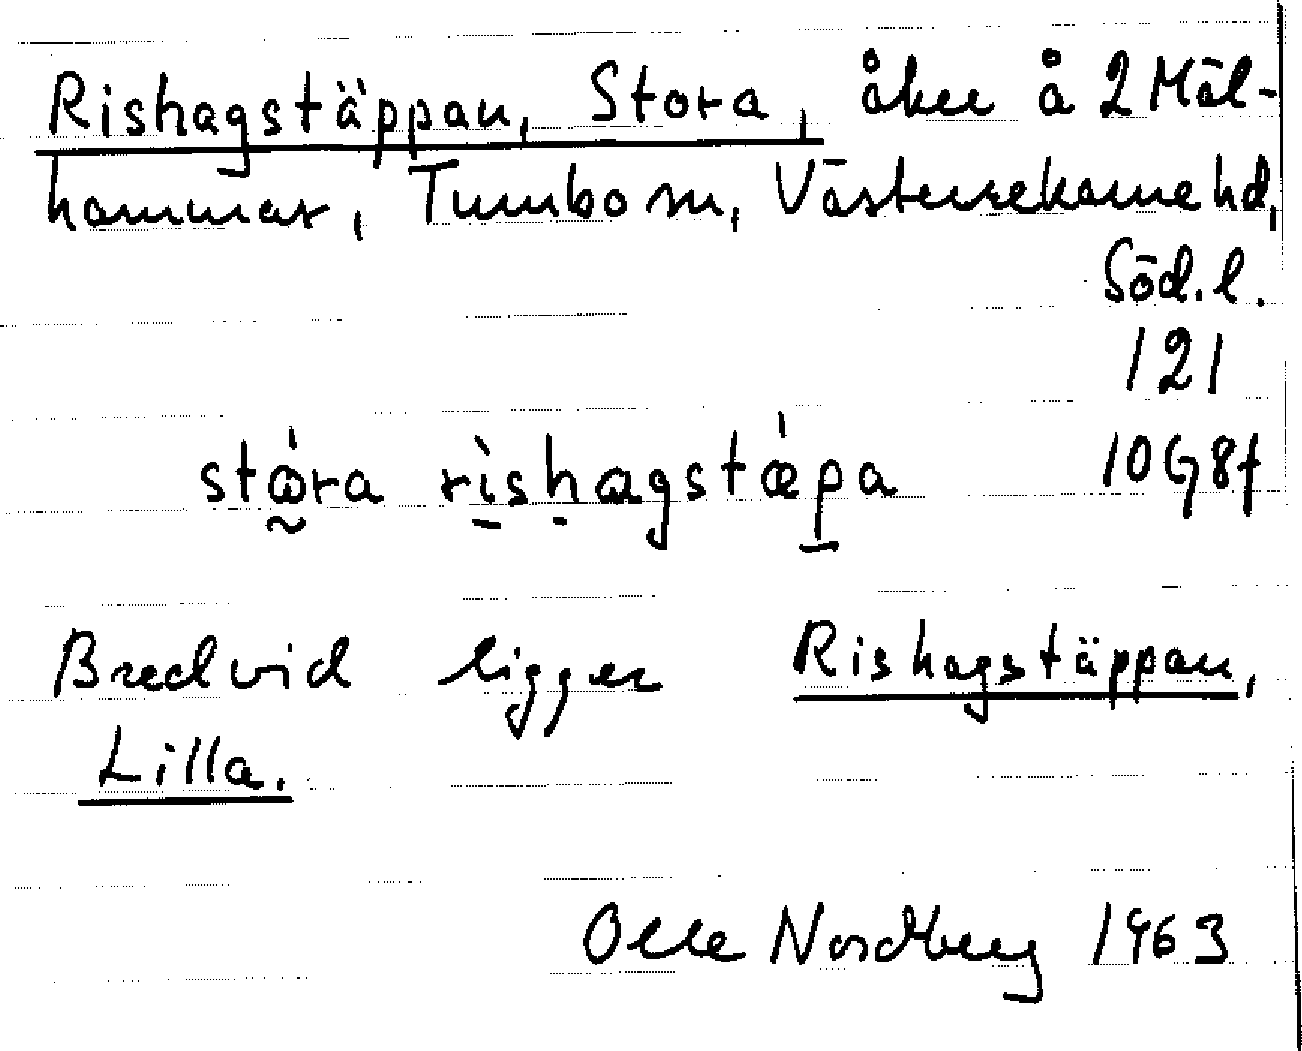 Rishagstäppan, Stora, åker å 2 Mäl-
hammar, Tumbo sn, Västerrekarne hd,
Söd. l.
121
stώ̰ra rì̱sḥagstǽp̱a 10G8f
Bredvid ligger Rishagstäppan,
Lilla.
Olle Nordberg 1963